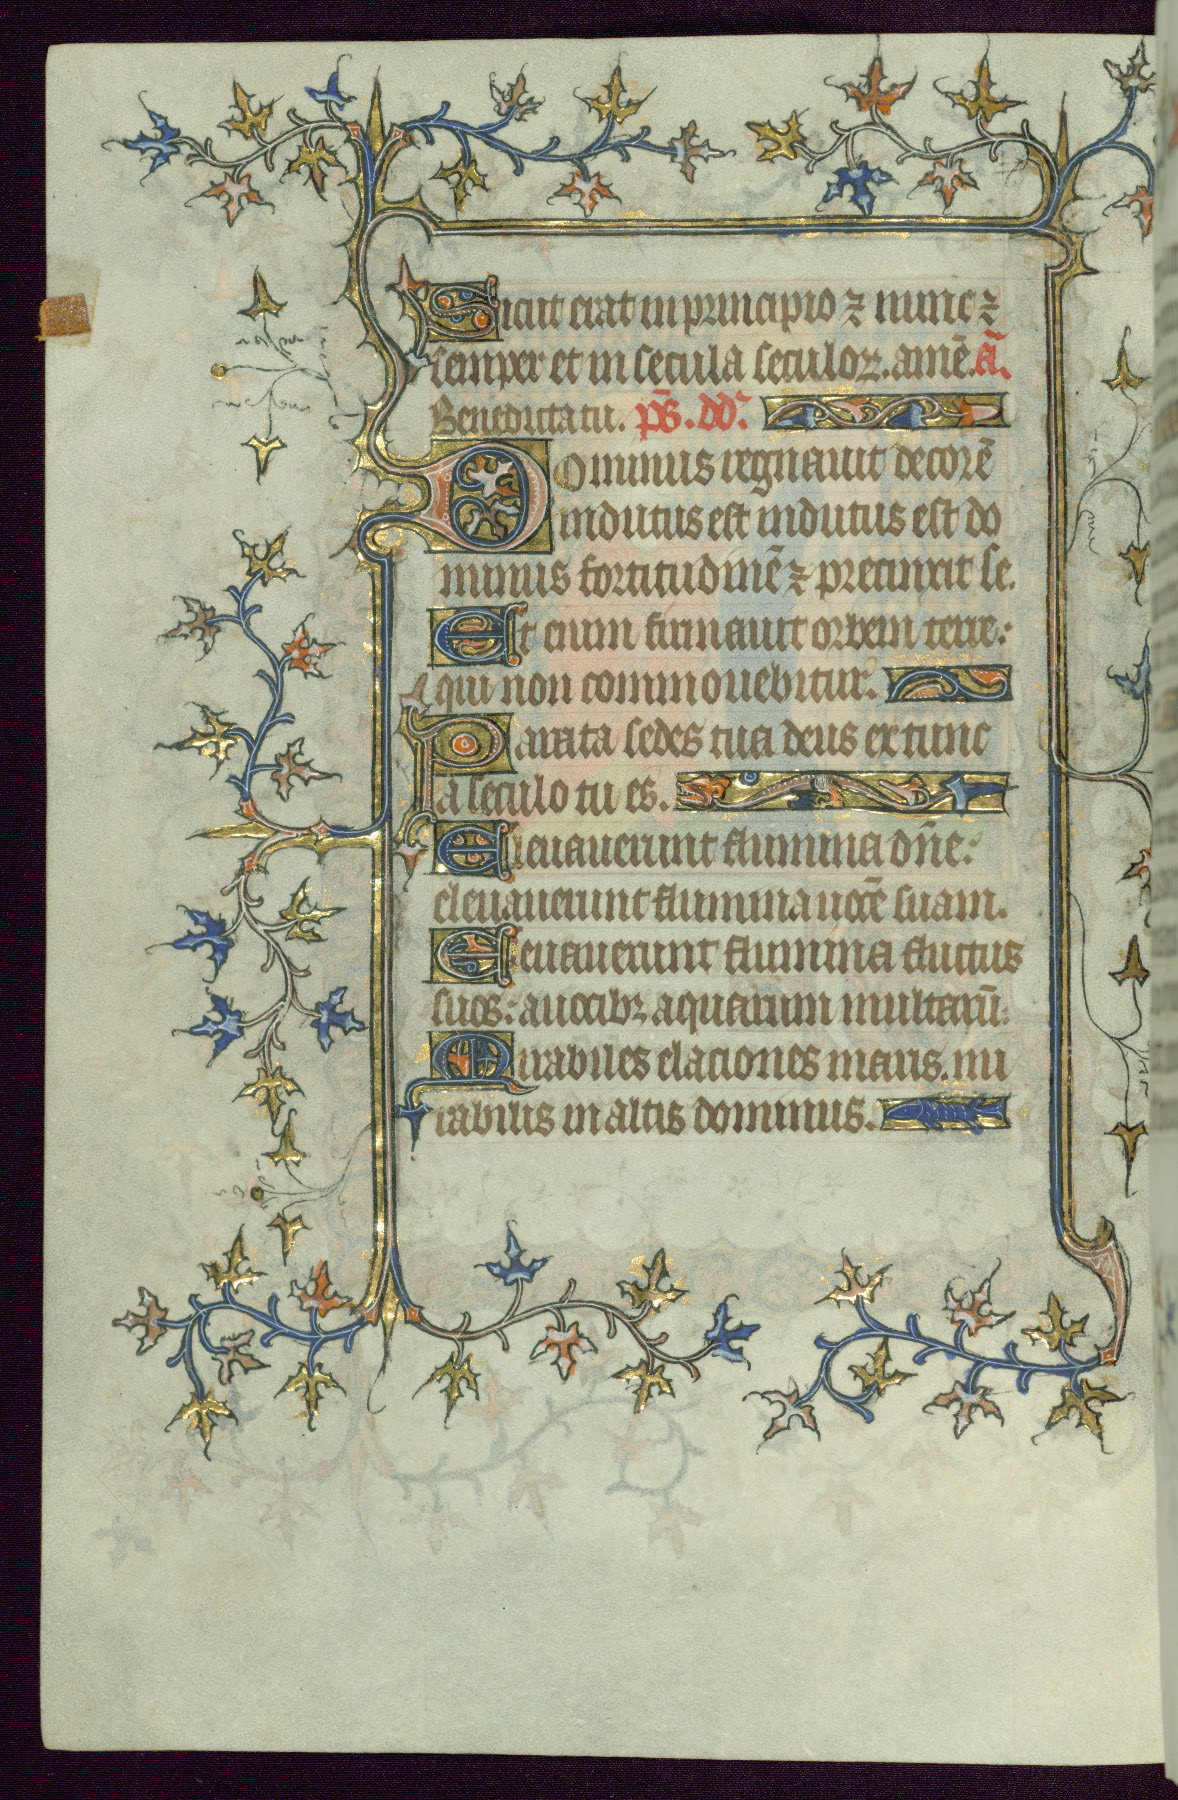 Sicut erat in principio ⁊ nunc ⁊
semper et in secula seculoꝝ. amē. ā.
Benedicta tu. p̄s. dd'.
Dominus regnauit decorē
indutus est indutus est do
minus fortitudinē ⁊ precinxit se.
Et enim firmauit orbem terre:
qui non commouebitur.
Parata sedes tua deus ex tunc
a seculo tu es.
Eleuauerunt flumina dn̄e:
eleuauerunt flumina uocē suam.
Eleuauerunt flumina fluctus
suos: a uocibꝫ aquarum multarū.
Mirabiles elaciones maris. mi
rabilis in altis dominus.